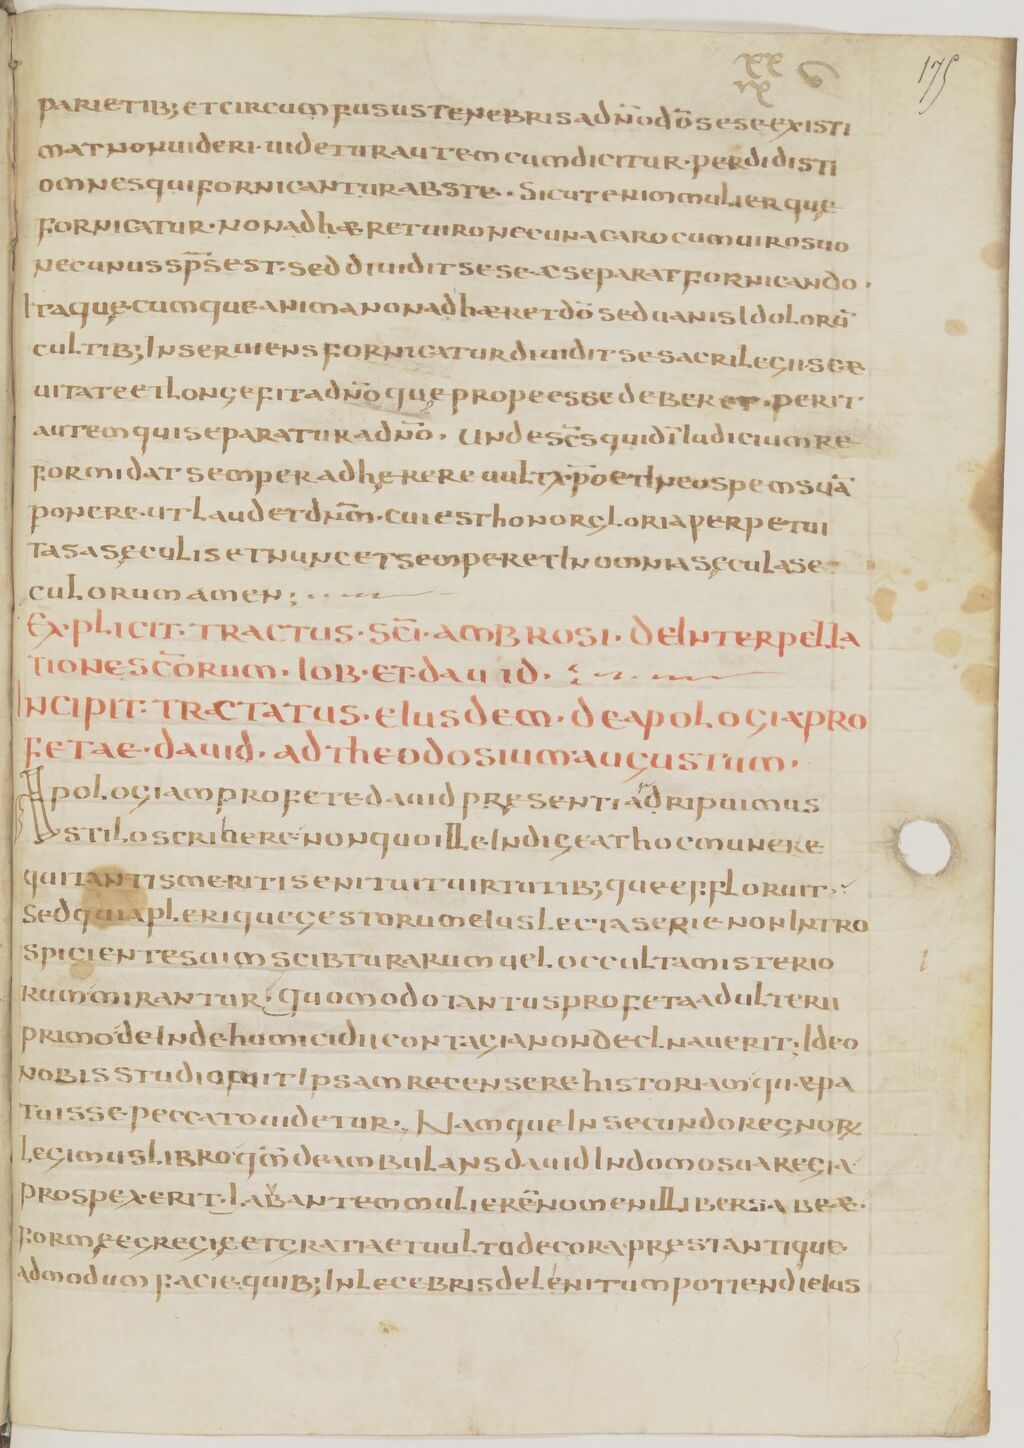 175
xx
xx
parietib; et circumfusus tenebris adño dõ sese existi
mat non uideri· uidetur autem cum dicitur· perdidisti
omnes qui fornicantur abs te·· Sicut enim mulier quę
fornicatur· non adhæret uiro nec una caro cum uiro suo
nec unus sp̃s est· sed diuidit sese æ separat fornicando·
Itaque cumque anima non adhæret dõ sed uanis Idolorũ
cultib; Inseruiens fornicatur diuidit se sacrilegii sæ
uitate et longe fit adño quę prope esse deberet· perit
autem qui separatur adño· Unde sc̃s qui dĩ Iudicium re
formidat semper adhęrere uult xp̃o et In eo spem suã
ponere· ut laudet dñm· cui est honor gloria perpetui
tas a sęculis et nunc et semper et In omnia sęcula se
culorum amen;
Explicit· tractus· sc̃i· ambrosi· de Interpella
tione sc̃orum· Iob· et· dauid·
Incipit· tractatus· eiusdem· de apologia pro
fetae· dauid· ad theodosium augustum·
Apologiam profete dauid pręsenti adripuimus
stilo scribere· non quo ille Indigeat hoc munere
qui tantis meritis enituit uirtutib; que effloruit·
Sed quia plerique gestorum eius lecta serie non Intro
spicientes uim scibturarum uel occulta misterio
rum mirantur· Quomodo tantus profeta adulterii
primo deInde homicidii contagia non declnauerit; Ideo
nobis studio fuit Ipsam recensere historiam quæ pa
tuisse peccato uidetur· Namque In secundo regnor
legimus libro qm̃ deambulans dauid In domo sua regia
prospexerit· labantem mulierẽ nomen illi bersabeæ·
formę egregię et gratia et uultu decora· pręstantique
admodum facie· quib; Inlecebris delenitum potiendi eius